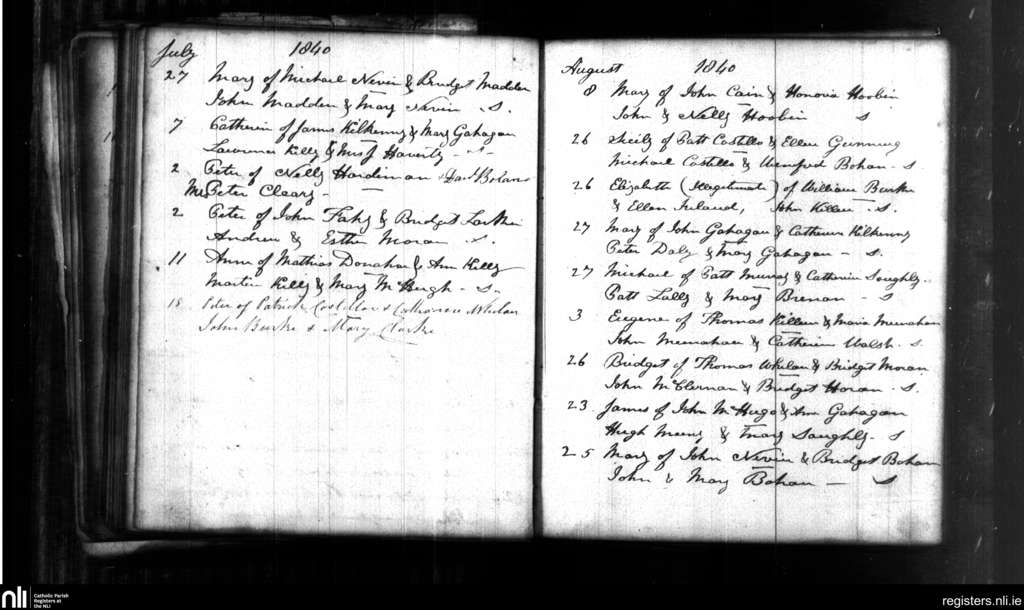 July 1840
27 Mary of Michael Nevin & Bridget Madden
John Madden & Mary Nevin S.
7 Catherin of James Kilkenny & Mary Gahagan
Lawrence Kelly & Haverty - S -
2 Peter of Nelly Hardiman & Bohan
Peter Cleary -
2 Peter of John Fahy & Bridget Larkin
Andrew & Esther Moran . S.
11 Ann of Mathias Donahue & Ann Kelly
Martin Kelly & Mary McHugh - S -
18 Peter of Patrick Costelloe & Catherine Whelan
John Burke & Mary Clarke
August 1840
8 Mary of John Cain & Honoria Hoobin
John & Nelly Hoobin S
26 Sicily of Patt Costello & Ellen Gunning
Michael Costello & Winefred Bohan . S
26 Elizabeth (Illegitimate) of William Burke
& Ellen Ireland, John Killeen . S.
27 Mary of John Gahagan & Catherin Kilkenny
Peter Daly & Mary Gahagan - S.
27 Michael of Patt Murray & Catherin Saughly -
Patt Lally & Mary Brenan - S
3 Eugene of Thomas Killeen & Maria Meenahan
John Meenahan & Catherin Walsh . S.
26 Bridget of Thomas Whelan & Bridget Moran
John McClernan & Bridget Horan . S.
23 James of John McHugo & Ann Gahagan
Hugh & Mary Saughly - S
25 Mary of John Nevin & Bridget Bohan
John & Mary Bohan - S
nli Catholic Parish
Registers at
the NLI
registers.nli.ie